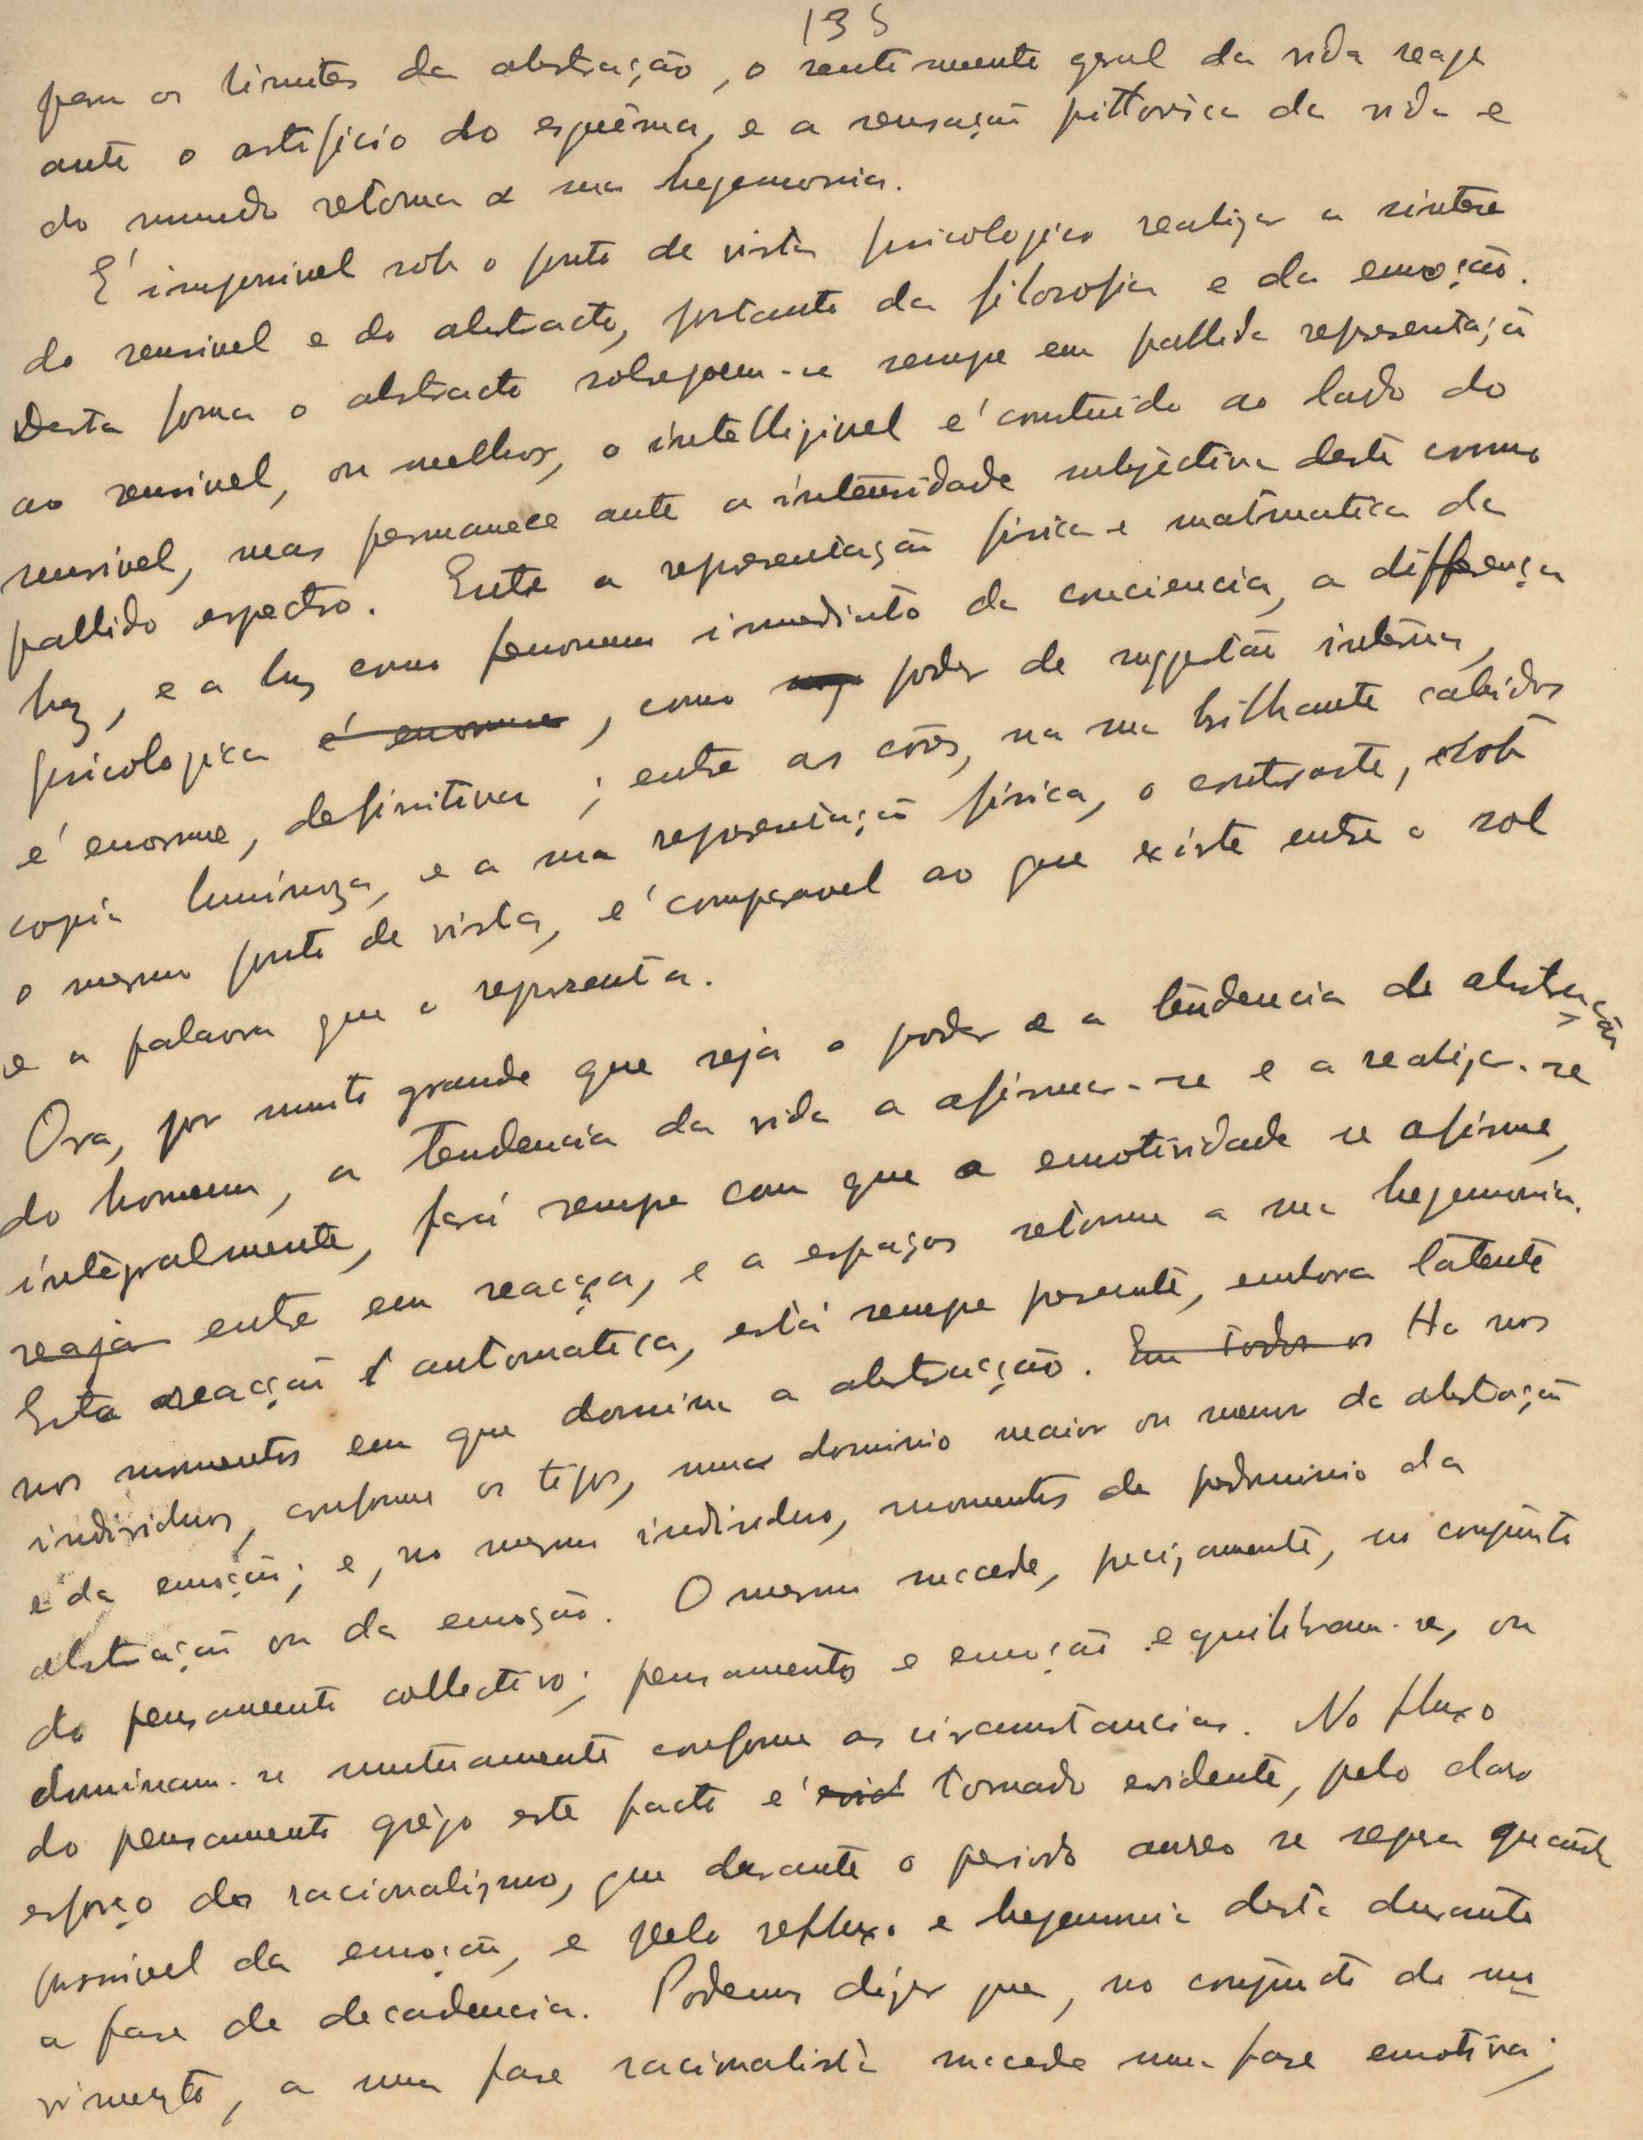 135
para os limites da abstracção, o sentimento geral da vida reage
ante o artificio do esquêma, e a sensação pittorica da vida e
do mundo retoma a sua hegemonia.
É impossivel sob o ponto de vista psicologico realizar a sintese
do sensivel e do abstracto, portanto da filosofia e da emoção.
Desta forma o abstracto sobrepoem-se sempre em pallida representação
ao sensivel, ou melhor, o intelligivel é construido ao lado do
sensivel, mas permanece ante a intensidade subjectiva deste como
pallido espectro. Entre a representação fisica e matematica da
luz, e a luz como fenomeno immediato da conciencia, a differença
psicologica é enorme, como poder de suggestão interna,
é enorme, definitiva; entre as côres, na sua brilhante
copia luminoza, e a sua representação fisica, o contraste, sob
o mesmo ponto de vista, é comparavel ao que existe entre o sol
e a palavra que o representa.
Ora, por muito grande que seja o poder e a tendencia de abstracção
do homem, a tendencia da vida a afirmar-se e a realizar-se
integralmente, fará sempre com que a emotividade se afirme,
reaja entre em reacção, e a espaços retome a sua hegemonia.
Esta reacção é automatica, está sempre presente, embora latente
nos momentos em que domina a abstracção. Em todos os Ha nos
individuos, conforme os tipos, um dominio maior ou menor da abstração
e da emoção; e, no mesmo individuo, momentos de predominio da
abstração ou da emoção. O mesmo succede, precizamente, no conjunto
do pensamento collectivo; pensamento e emoção equilibram-se, ou
dominam-se mutuamente conforme as circumstancias. No fluxo
do pensamento grêgo este facto é evid tornado evidente, pelo claro
esforço do racionalizmo, que durante o periodo aureo se separa quanto
possivel da emoção, e pelo refluxo e hegemonia desta durante
a fase de decadencia. Podemos dizer que, no conjuncto do mo-
vimento, a uma fase racionalista succede uma fase emotiva;